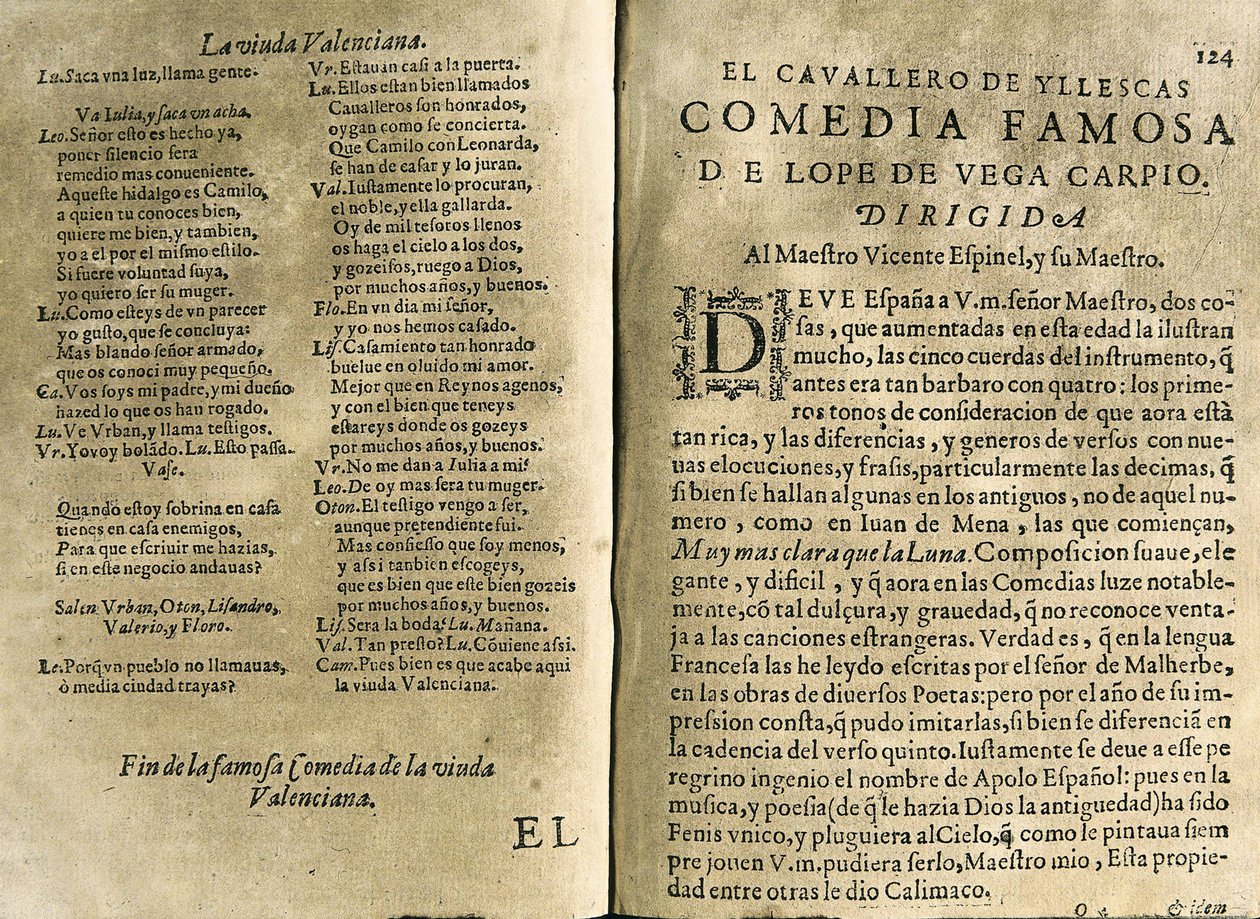 La viuda Valenciana.
Lu.Saca vna luz,llama gente.
Va Iulia,y ſaca vn acha.
Leo.Señor eſto es hecho ya,
poner ſilencio ſera
remedio mas conueniente.
Aqueſte hidalgo es Camilo,
a quien tu conoces bien,
quiere me bien,y tambien,
yo a el por el miſmo eſtilo.
Si fuere voluntad ſuya,
yo quiero ſer ſu muger.
Lu.Como eſteys de vn parecer
yo guſto,que ſe concluya:
Mas blando ſeñor armado,
que os conoci muy pequeño.
Ca.Vos ſoys mi padre,y mi dueño
hazed lo que os han rogado.
Lu.Ve Vrban,y llama teſtigos.
Vr.Yo voy bolãdo.Lu.Eſto paſſa.
Vaſe.
Quando eſtoy ſobrina en caſa
tienes en caſa enemigos,
Para que eſcriuir me hazias,
ſi en eſte negocio andauas?
Salen Vrban,Oton,Liſandro,
Valerio,y Floro.
Le.Porq̃ vn pueblo no llamauas,
ò media ciudad trayas?
Vr.Eſtauan caſi a la puerta.
Lu.Ellos eſtan bien llamados
Caualleros ſon honrados,
oygan como ſe concierta.
Que Camilo con Leonarda,
ſe han de caſar y lo juran.
Val.Iuſtamente lo procuran,
el noble,y ella gallarda.
Oy de mil teſoros llenos
os haga el cielo a los dos,
y gozeiſos,ruego a Dios,
por muchos años,y buenos.
Flo.En vn dia mi ſeñor,
y yo nos hemos caſado.
Liſ.Caſamiento tan honrado
buelue en oluido mi amor.
Mejor que en Reynos agenos,
y con el bien que teneys
eſtareys donde os gozeys
por muchos años,y buenos.
Vr.No me dan a Iulia a mi?
Leo.De oy mas ſera tu muger.
Oton.El teſtigo vengo a ſer,
aunque pretendiente fui.
Mas confieſſo que ſoy menos,
y aſsi tanbien eſcogeys,
que es bien que eſte bien gozeis
por muchos años,y buenos.
Liſ.Sera la boda?Lu.Mañana.
Val.Tan preſto?Lu.Cõuiene aſsi.
Cam.Pues bien es que acabe aqui
la viuda Valenciana.
Fin de la famoſa Comedia de la viuda
Valenciana.
EL
124
EL CAVALLERO DE YLLESCAS
COMEDIA FAMOSA
DE LOPE DE VEGA CARPIO.
DIRIGIDA
Al Maeſtro Vicente Eſpinel,y ſu Maeſtro.
DEVE Eſpaña a V.m.ſeñor Maeſtro, dos co-
ſas, que aumentadas en eſta edad la iluſtran
mucho, las cinco cuerdas del inſtrumento, q̃
antes era tan barbaro con quatro: los prime-
ros tonos de conſideracion de que aora eſtà
tan rica, y las diferencias, y generos de verſos con nue-
uas elocuciones,y fraſis,particularmente las decimas, q̃
ſi bien ſe hallan algunas en los antiguos, no de aquel nu-
mero, como en Iuan de Mena, las que comiençan,
Muy mas clara que la Luna. Compoſicion ſuaue, ele
gante, y dificil, y q̃ aora en las Comedias luze notable-
mente, cõ tal dulçura,y grauedad, q̃ no reconoce venta-
ja a las canciones eſtrangeras. Verdad es, q̃ en la lengua
Franceſa las he leydo eſcritas por el ſeñor de Malherbe,
en las obras de diuerſos Poetas:pero por el año de ſu im-
preſsion conſta,q̃ pudo imitarlas,ſi bien ſe diferenciã en
la cadencia del verſo quinto.Iuſtamente ſe deue a eſſe pe
regrino ingenio el nombre de Apolo Eſpañol: pues en la
muſica,y poeſia(de q̃ le hazia Dios la antiguedad)ha ſido
Fenis vnico,y pluguiera al Cielo,q̃ como le pintaua ſiem
pre jouen V.m.pudiera ſerlo,Maeſtro mio, Eſta propie-
dad entre otras le dio Calimaco.
O 4 & idem